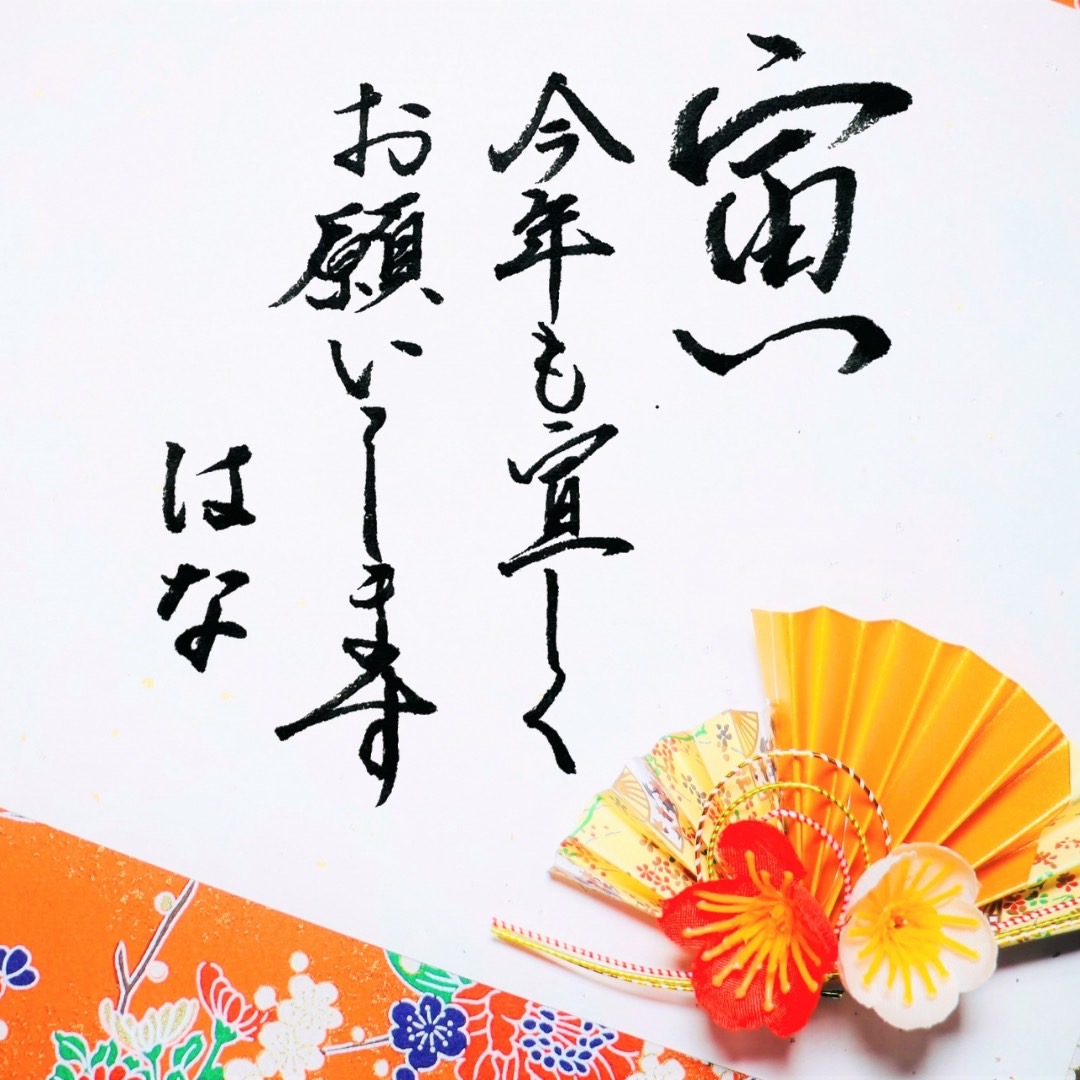 寅
今年も宜しく
お願いします
はな